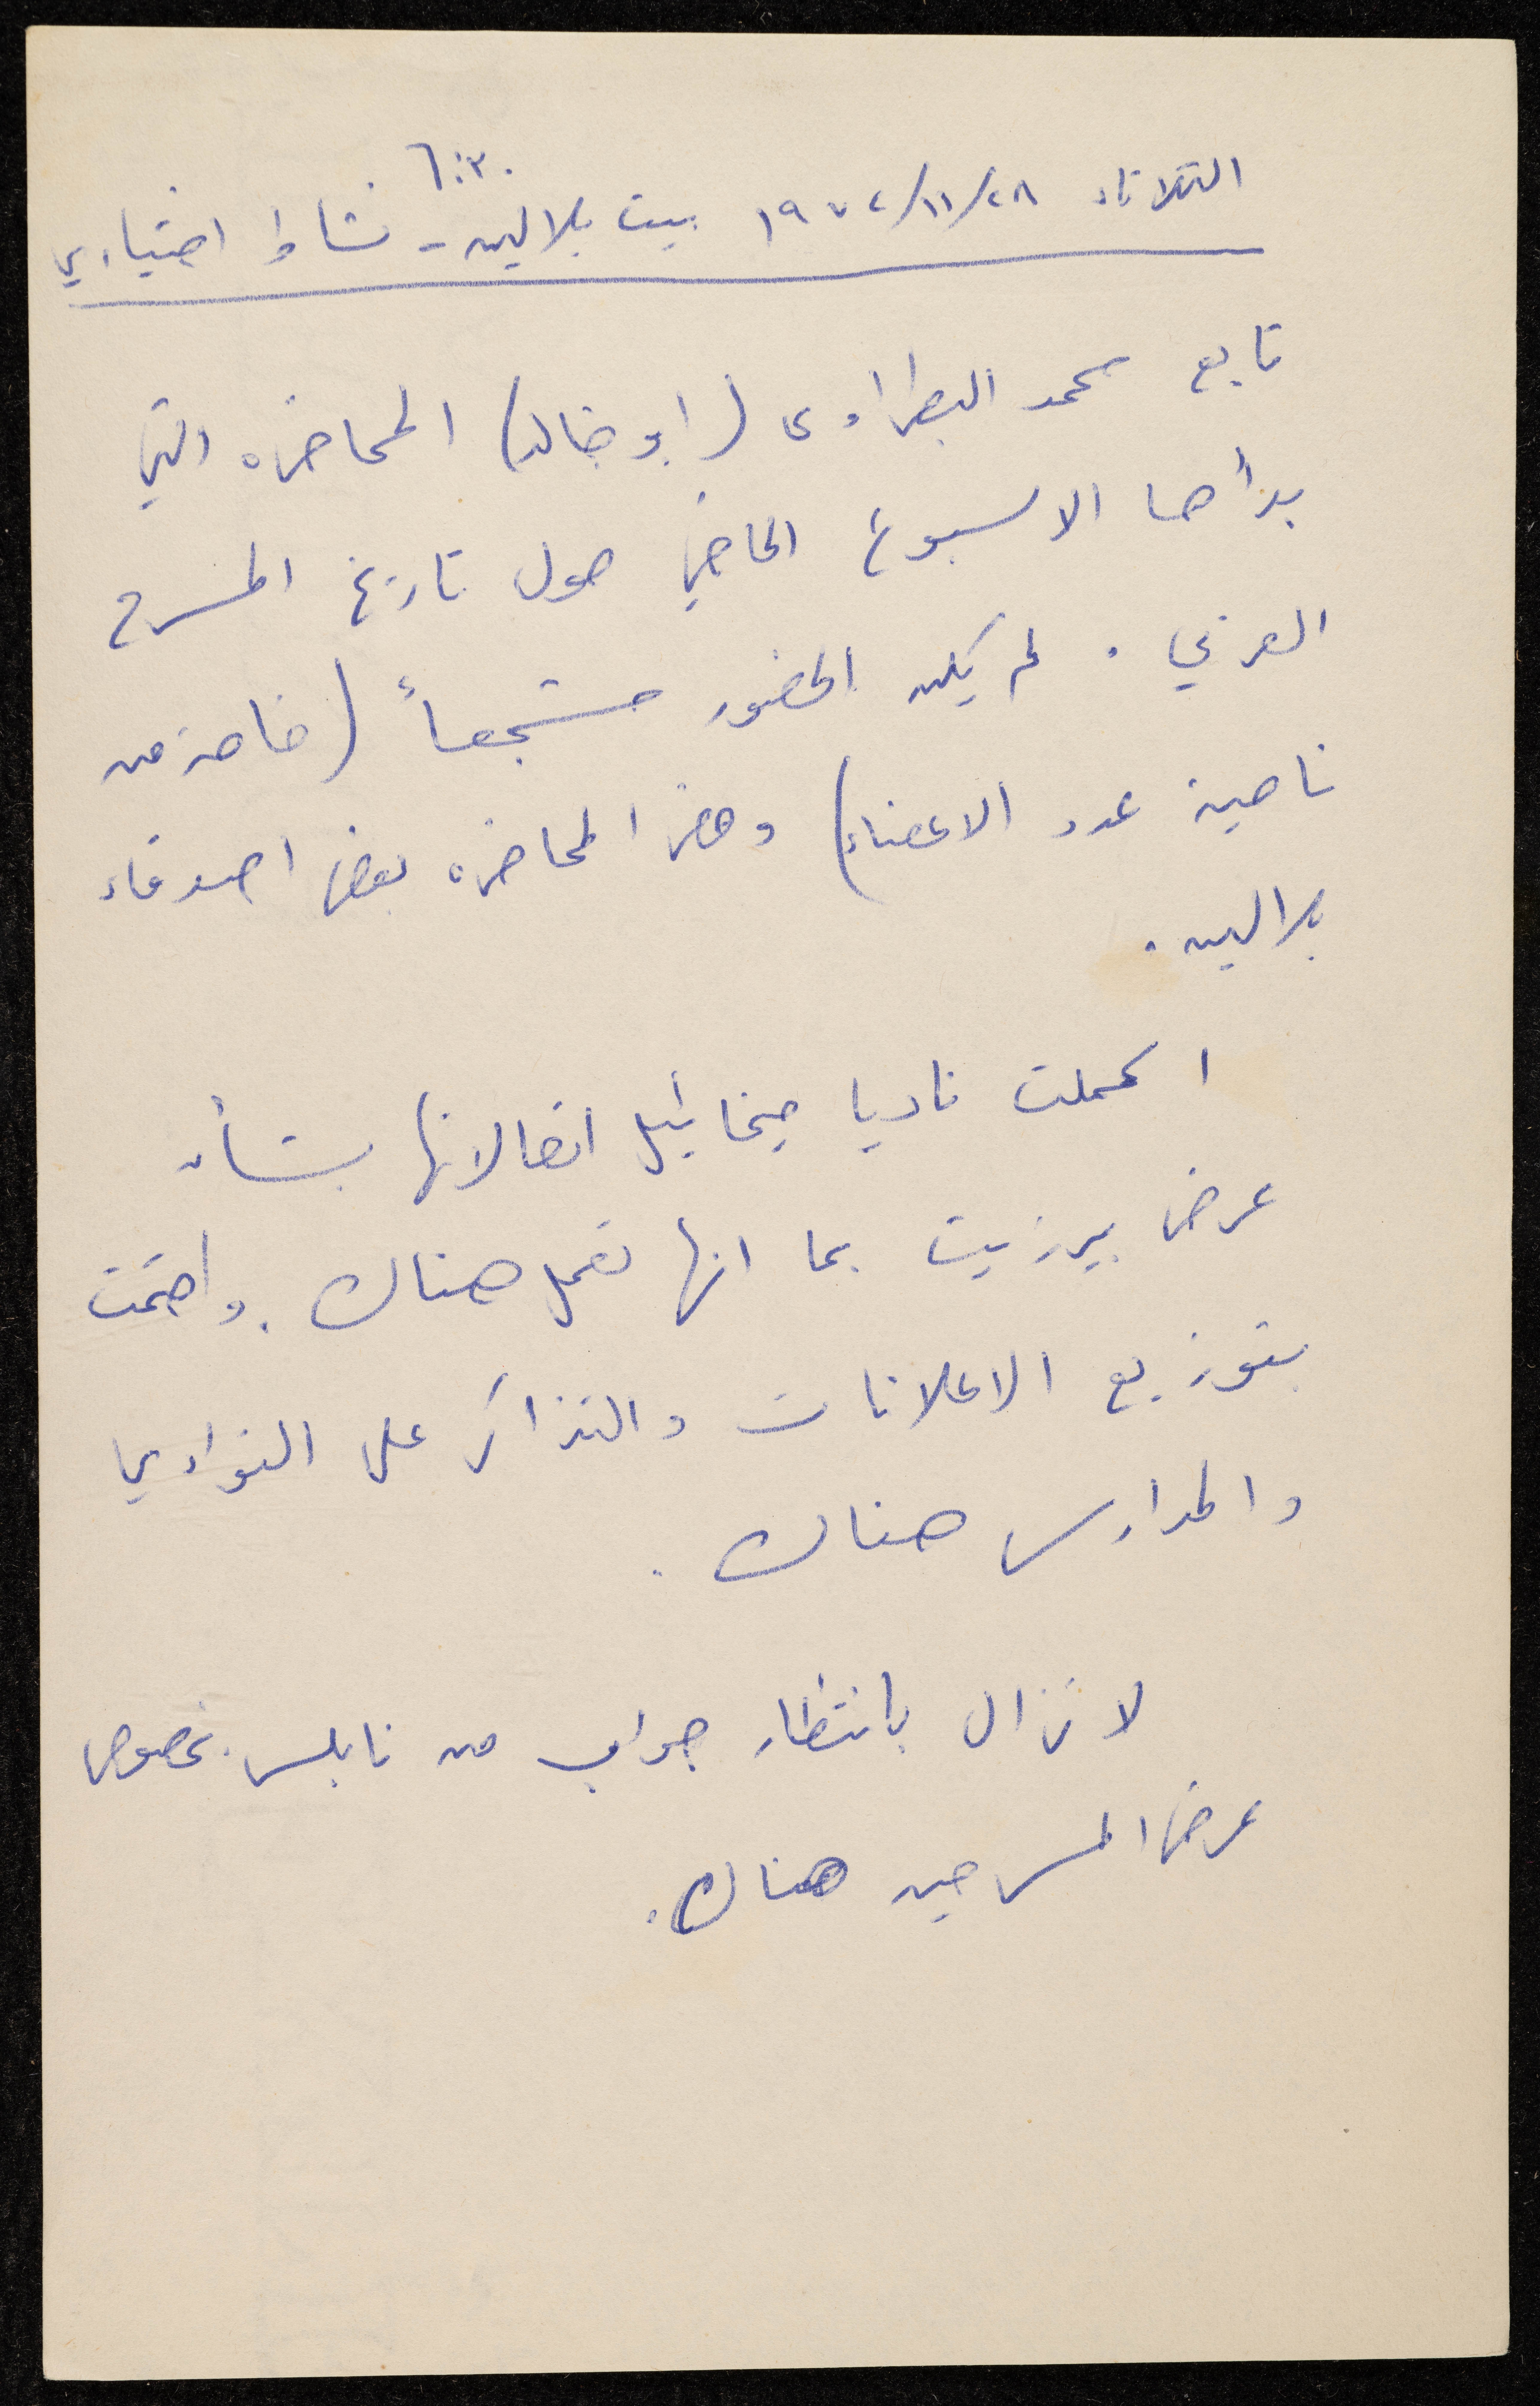 ٦:٣٠
الثلاثاء ١٩٧٢/١١/٢٨ بيت بلالين - نشاط اختياري
تابع محمد البطراوي (ابو خالد) المحاضره التي
بدأها الاسبوع الماضي حول تاريخ المسرح
العربي . لم يكن الحضور مشجعاً (خاصة من
ناحية عدد الاعضاء) وحضر المحاضره بعض اصدقاء
بلالين .
اكملت ناديا ميخائيل اتصالاتها بشأن
عرض بيرزيت بما انها تعمل هناك . واهتمت
بتوزيع الاعلانات والتذاكر على النوادي
والمدارس هناك .
لا نزال بانتظار جواب من نابلس بخصوص
عرض المسرحيه هناك .